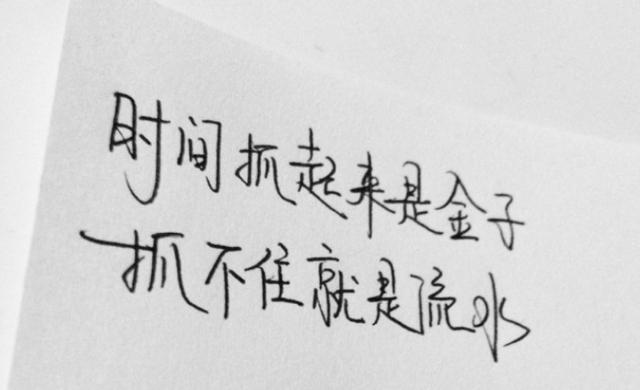 时间抓起来是金子
抓不住就是流水